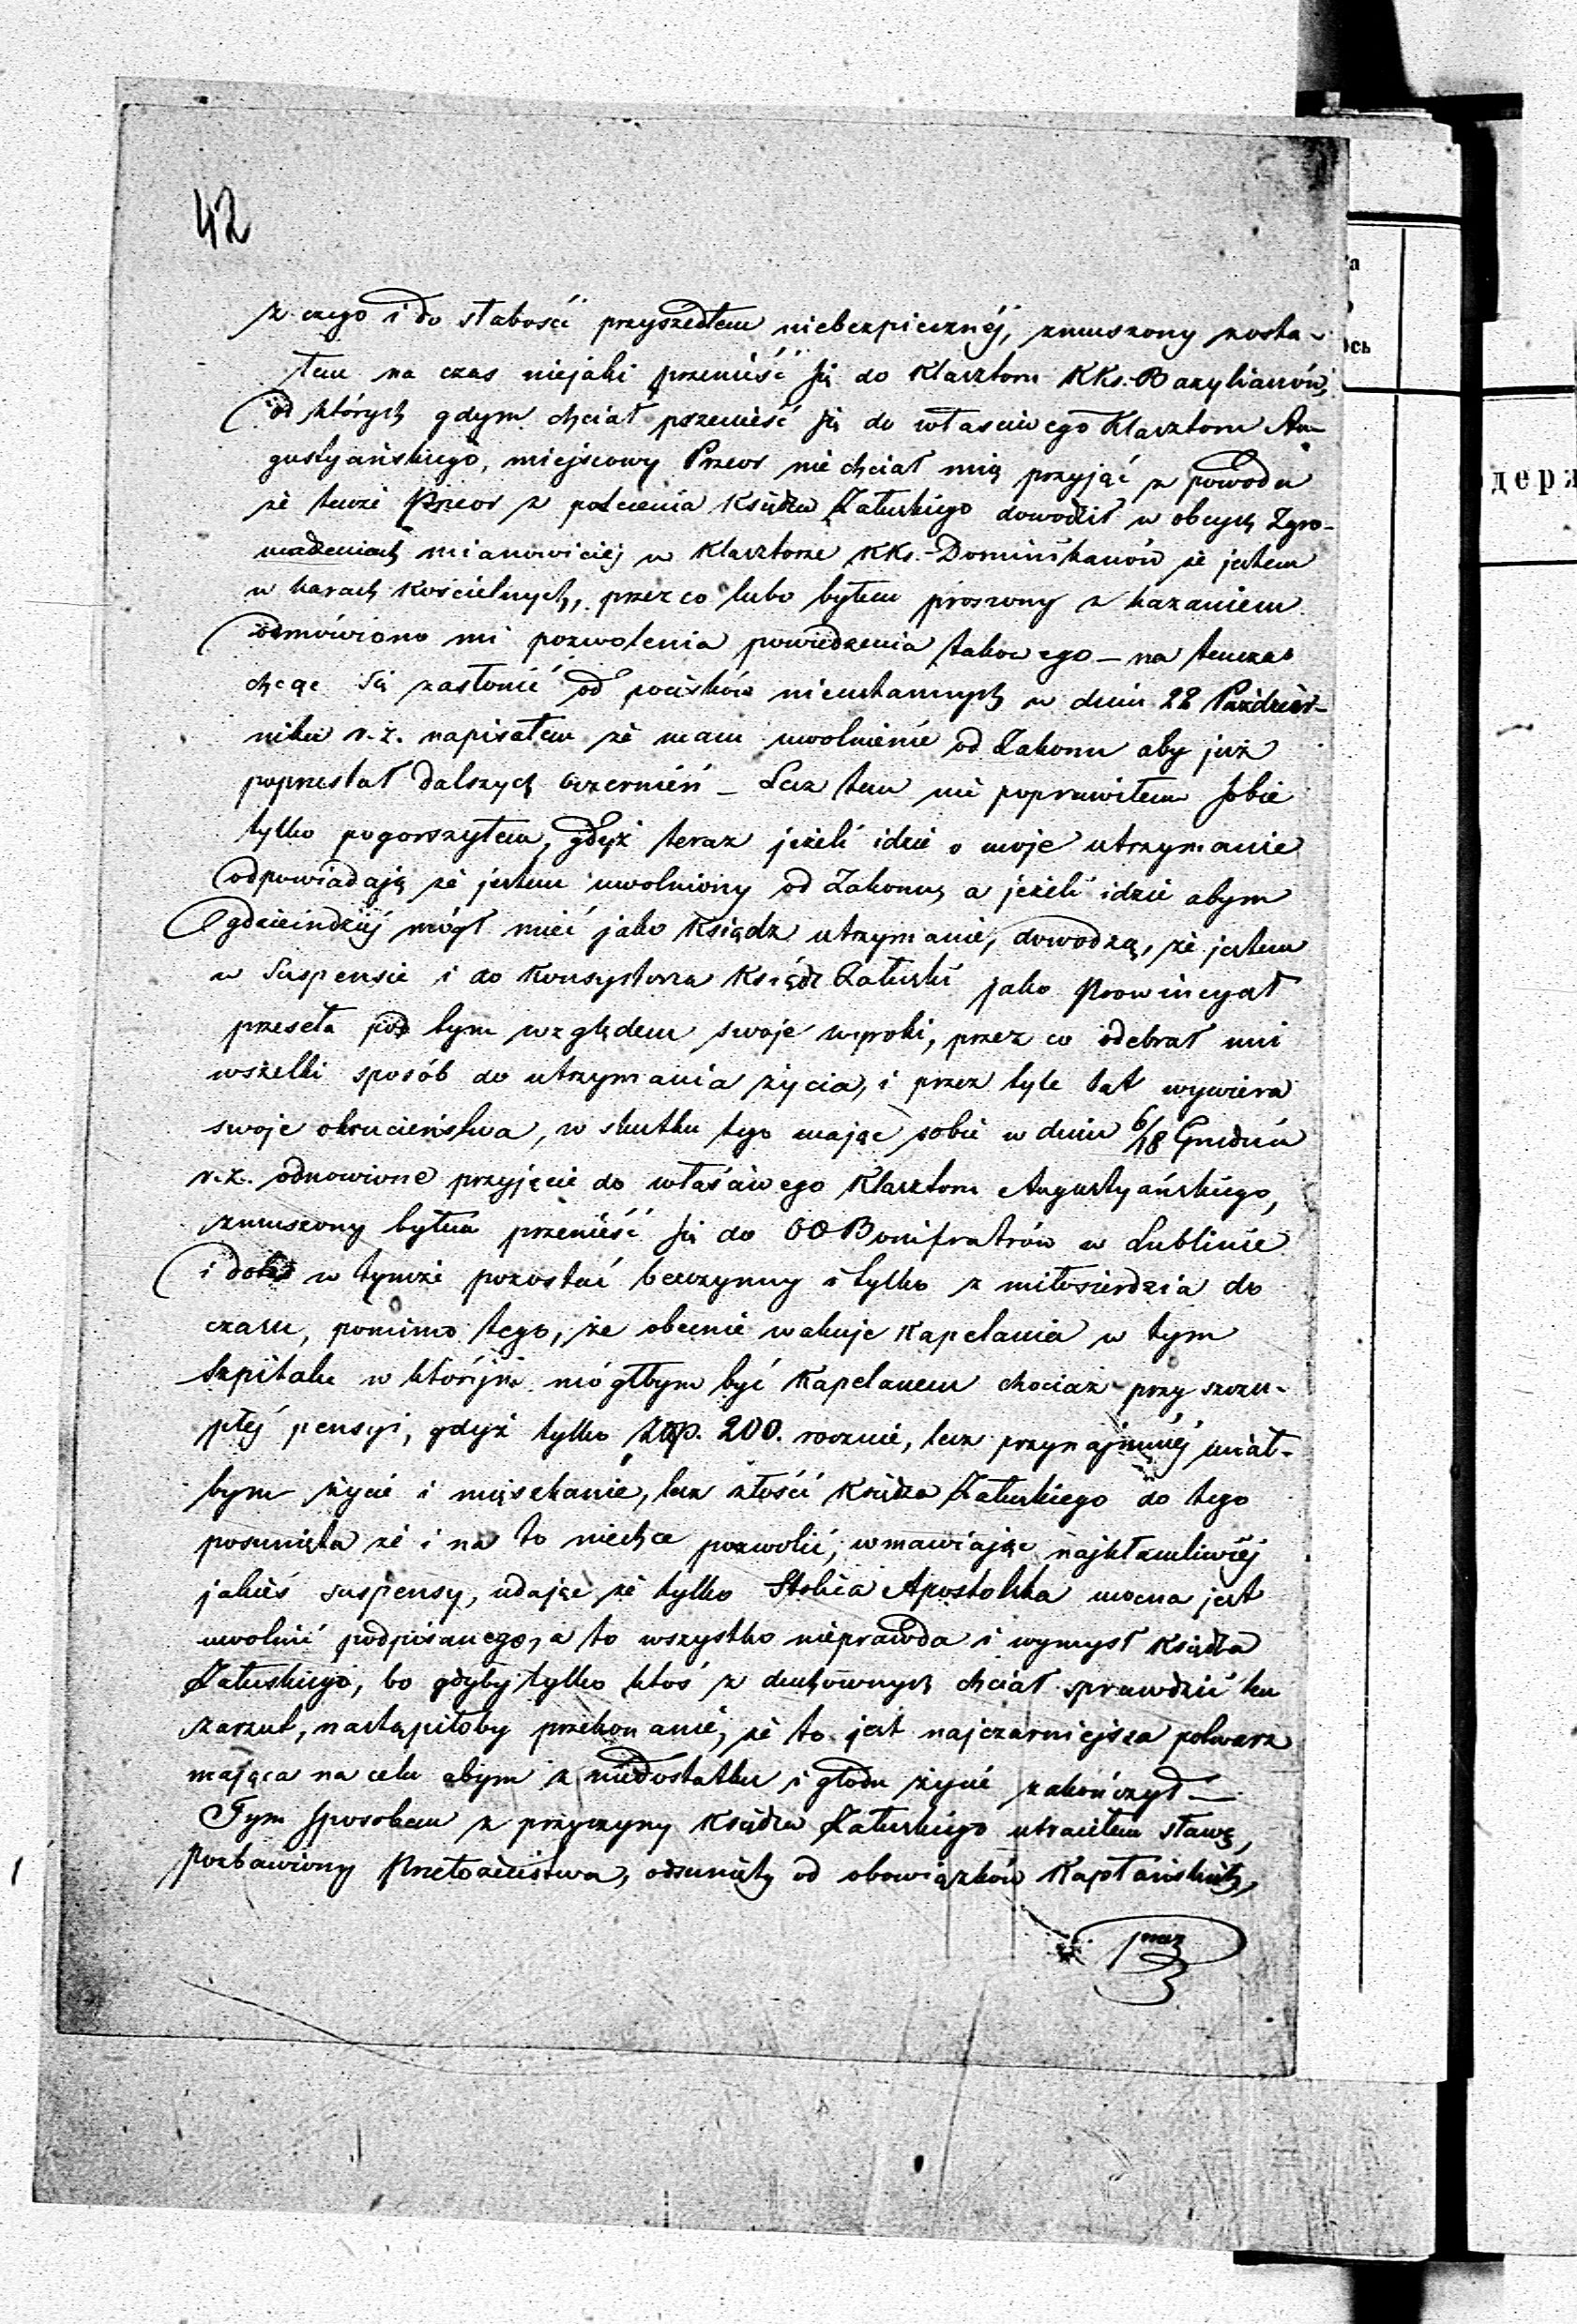 42
z czego i do słabości przyszedłem niebezpiecznéj, zmuszony zosta-
łem na czas niejaki przenieść się do Klasztoru KKs. Bazylianów,
od których gdym chciał przenieść się do własciwego Klasztoru Au-
gustyańskiego, miejscowy Przeor nie chciał mię przyjąć z powodu
że tenże Przeor z polecenia Księdza Załuskiego dowodził w obcych Zgro-
madzeniach mianowiciéj w Klasztorze KKs.-Dominikanów że jestem
w karach Kościelnych, przez co lubo byłem proszony z kazaniem
odmówiono mi pozwolenia powiedzenia takowego — na tenczas
chcąc się zasłonić od pocisków nieustannych w dniu 22 Paździer-
nika r. z. napisałem że mam uwolnienie od Zakonu aby już
poprzestał dalszych oczernień — Lecz tem nie poprawiłem sobie
tylko pogorszyłem, gdyż teraz jeżeli idzie o moje utrzymanie
odpowiadają że jestem uwolniony od Zakonu, a jeżeli idzie abym
gdzieindziéj mógł mieć jako Ksiądz utrzymanie, dowodzą, że jestem
w Suspensie i do Konsystorza Ksiądz Załuski jako Prowincyał
przeseła pod tym względem swoje wproki, przez co odebrał mi
wszelki sposób do utrzymania życia, i przez tyle lat wywiera
swoje okrucieństwa, w skutku tego mając sobie w dniu 6/18 Grudnia
r. z. odnowione przyjęcie do właściwego Klasztoru Augustyańskiego,
zmuszony byłem przenieść się do OO Bonifratrów w Lublinie
i dotąd w tymże pozostać bezczynny i tylko z miłosierdzia do
czasu, pomimo tego, że obecnie wakuje Kapelania w tym
Szpitalu w któréjże mógłbym być Kapelanem chociaż przy szczu-
płéj pensyi, gdyż tylko złp. 200. rocznie, lecz przynajmniéj miał-
bym życie i mięszkanie, lecz złość Księdza Załuskiego do tego
posunięta że i na to niechce pozwolić, wmawiając najkłamliwiéj
jakieś suspensy, udając że tylko Stolica Apostolska mocna jest
uwolnić podpisanego, a to wszystko nieprawda i wymysł Księdza
Załuskiego, bo gdyby tylko ktoś z duchownych chciał sprawdzić ten
zarzut, nastąpiłoby przekonanie, że to jest najczarniejsza potwarz
mająca na celu abym z niedostatku i głodu życie zakończył —
Tym sposobem z przyczyny Księdza Załuskiego utraciłem sławę,
pozbawiony Przełożeństwa, odsunięty od obowiązków Kapłańskich,
przez
а
ось
одерж